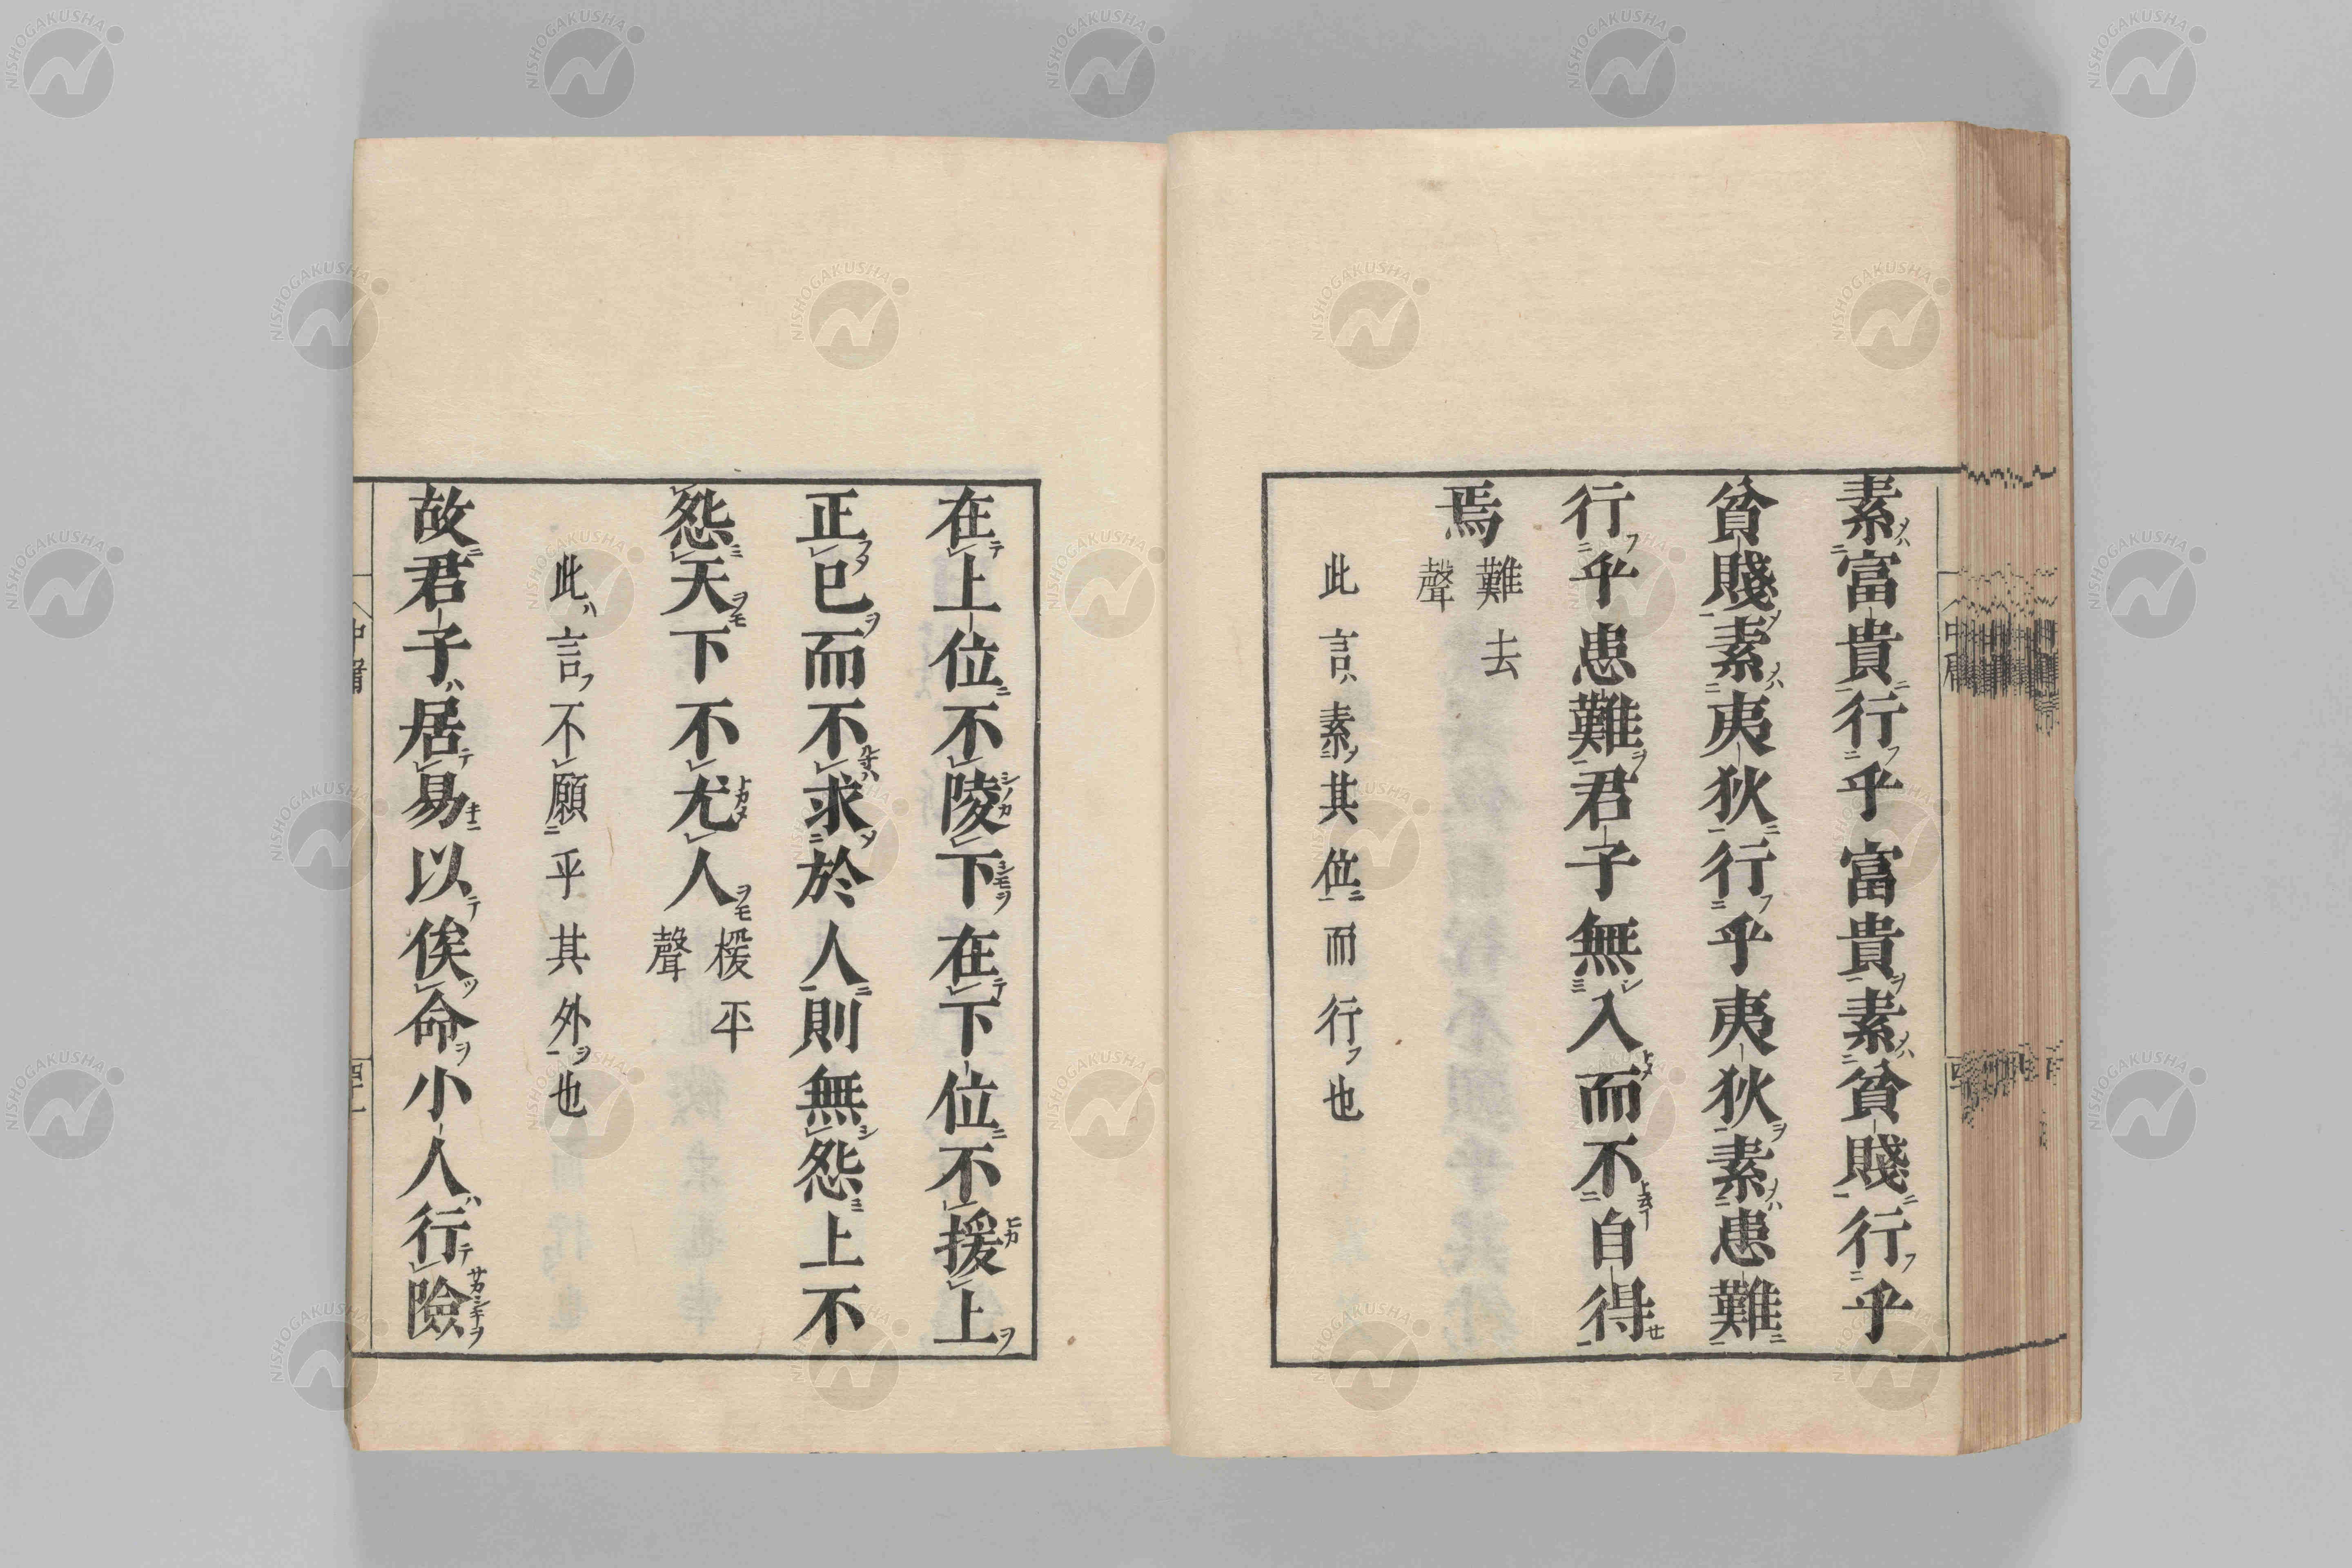 素富貴行乎富貴素貧賤行乎
貧賤素夷狄行乎夷狄素患難
行乎患難君子無入而不自得
焉難去聲
此言素其位而行也
在上位不陵下在下位不援上
正已而不求於人則無怨上不
怨天下不尤人援平聲
此言不願乎其外也
故君子居易以俟命小人行險
中庸